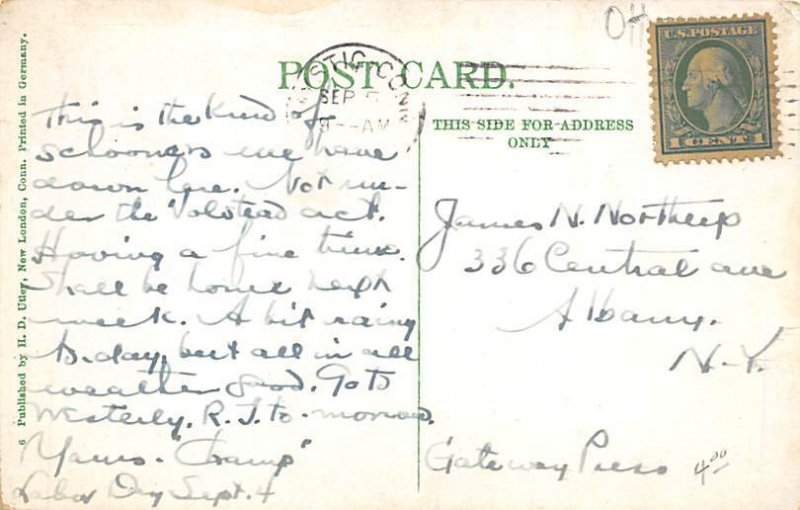 OH
U.S. POSTAGE
1 CENT 1
POST CARD.
MYSTIC CONN
SEP
AM
THIS SIDE FOR ADDRESS
ONLY
This is the kind of
schooners we have
down here. Not un-
der the Volstead act.
Having a fine time.
Shall be home next
week. A bit rainy
to-day, but all in all
weather good. Go to
Westerly, R.I. to-morrow.
Yours - "Champ"
Labor Day Sept. 4
James N. Northrup
336 Central ave
Albany.
N.Y.
Gateway Press
4.00
6 Published by H. D. Utley, New London, Conn. Printed in Germany.